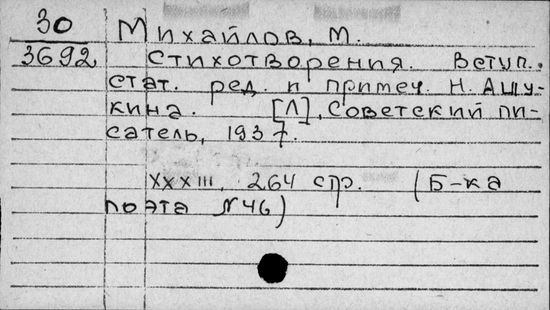 30 Михайлов, М.
3692 Стихотворения. Вступ.
стат. ред. и примеч. Н. Ашу-
кина. [Л], Советский пи-
сатель, 1937.
XXXIII, 264 стр. (Б-ка
поэта №46)